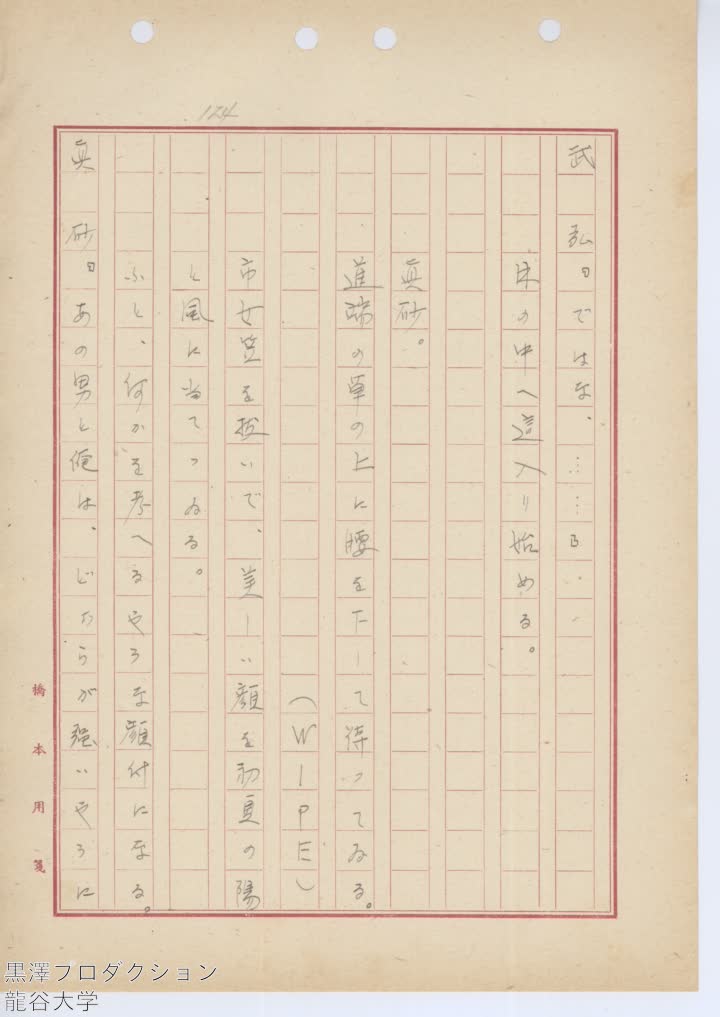 124
武弘「ではな、……」
林の中へ這入り始める。
真砂。
道端の草の上に腰を下して待ってゐる。
(WIPE)
市女笠を抜いで、美しい顔を初夏の陽
と風に当てゝゐる。
ふと、何かを考へるやうな顔付になる。
真砂「あの男と俺は、どちらが強いやうに
橋本用箋
黒澤プロダクション
龍谷大学